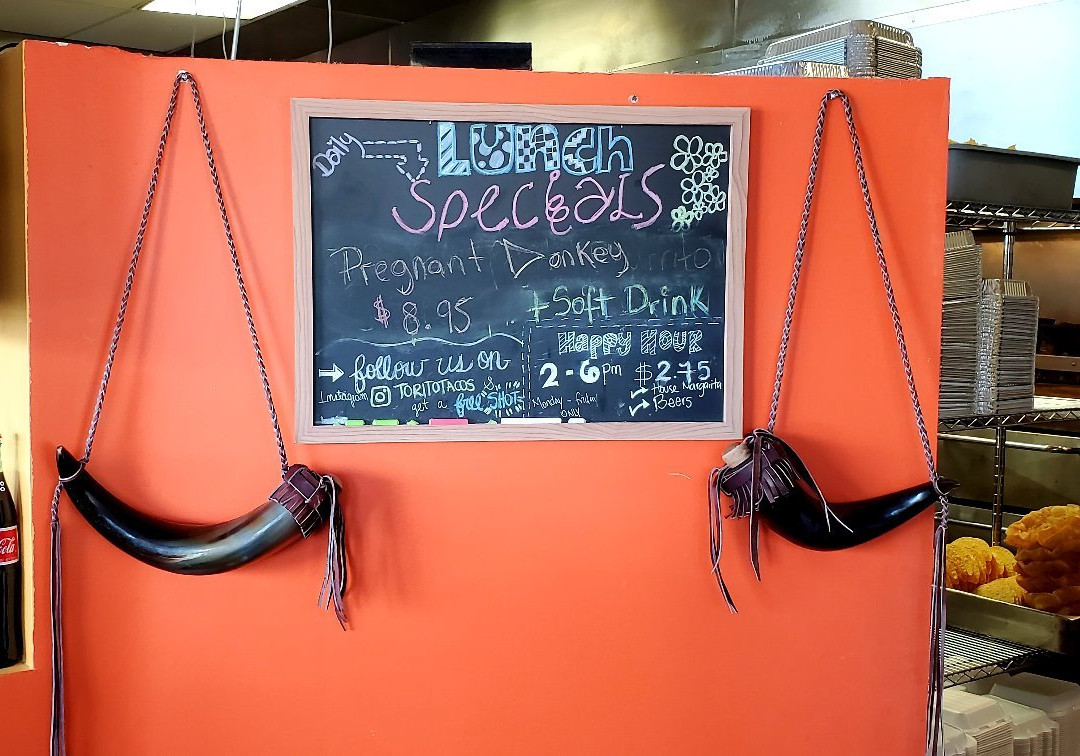 Daily
Lunch
Specials
Pregnant Donkey
$8.95 + Soft Drink
follow us on
Instagram TORITOTACOS
get a free SHOT
Happy Hour
2-6pm $2.75
House Margarita
Beers
Monday - friday
ONLY
Cola